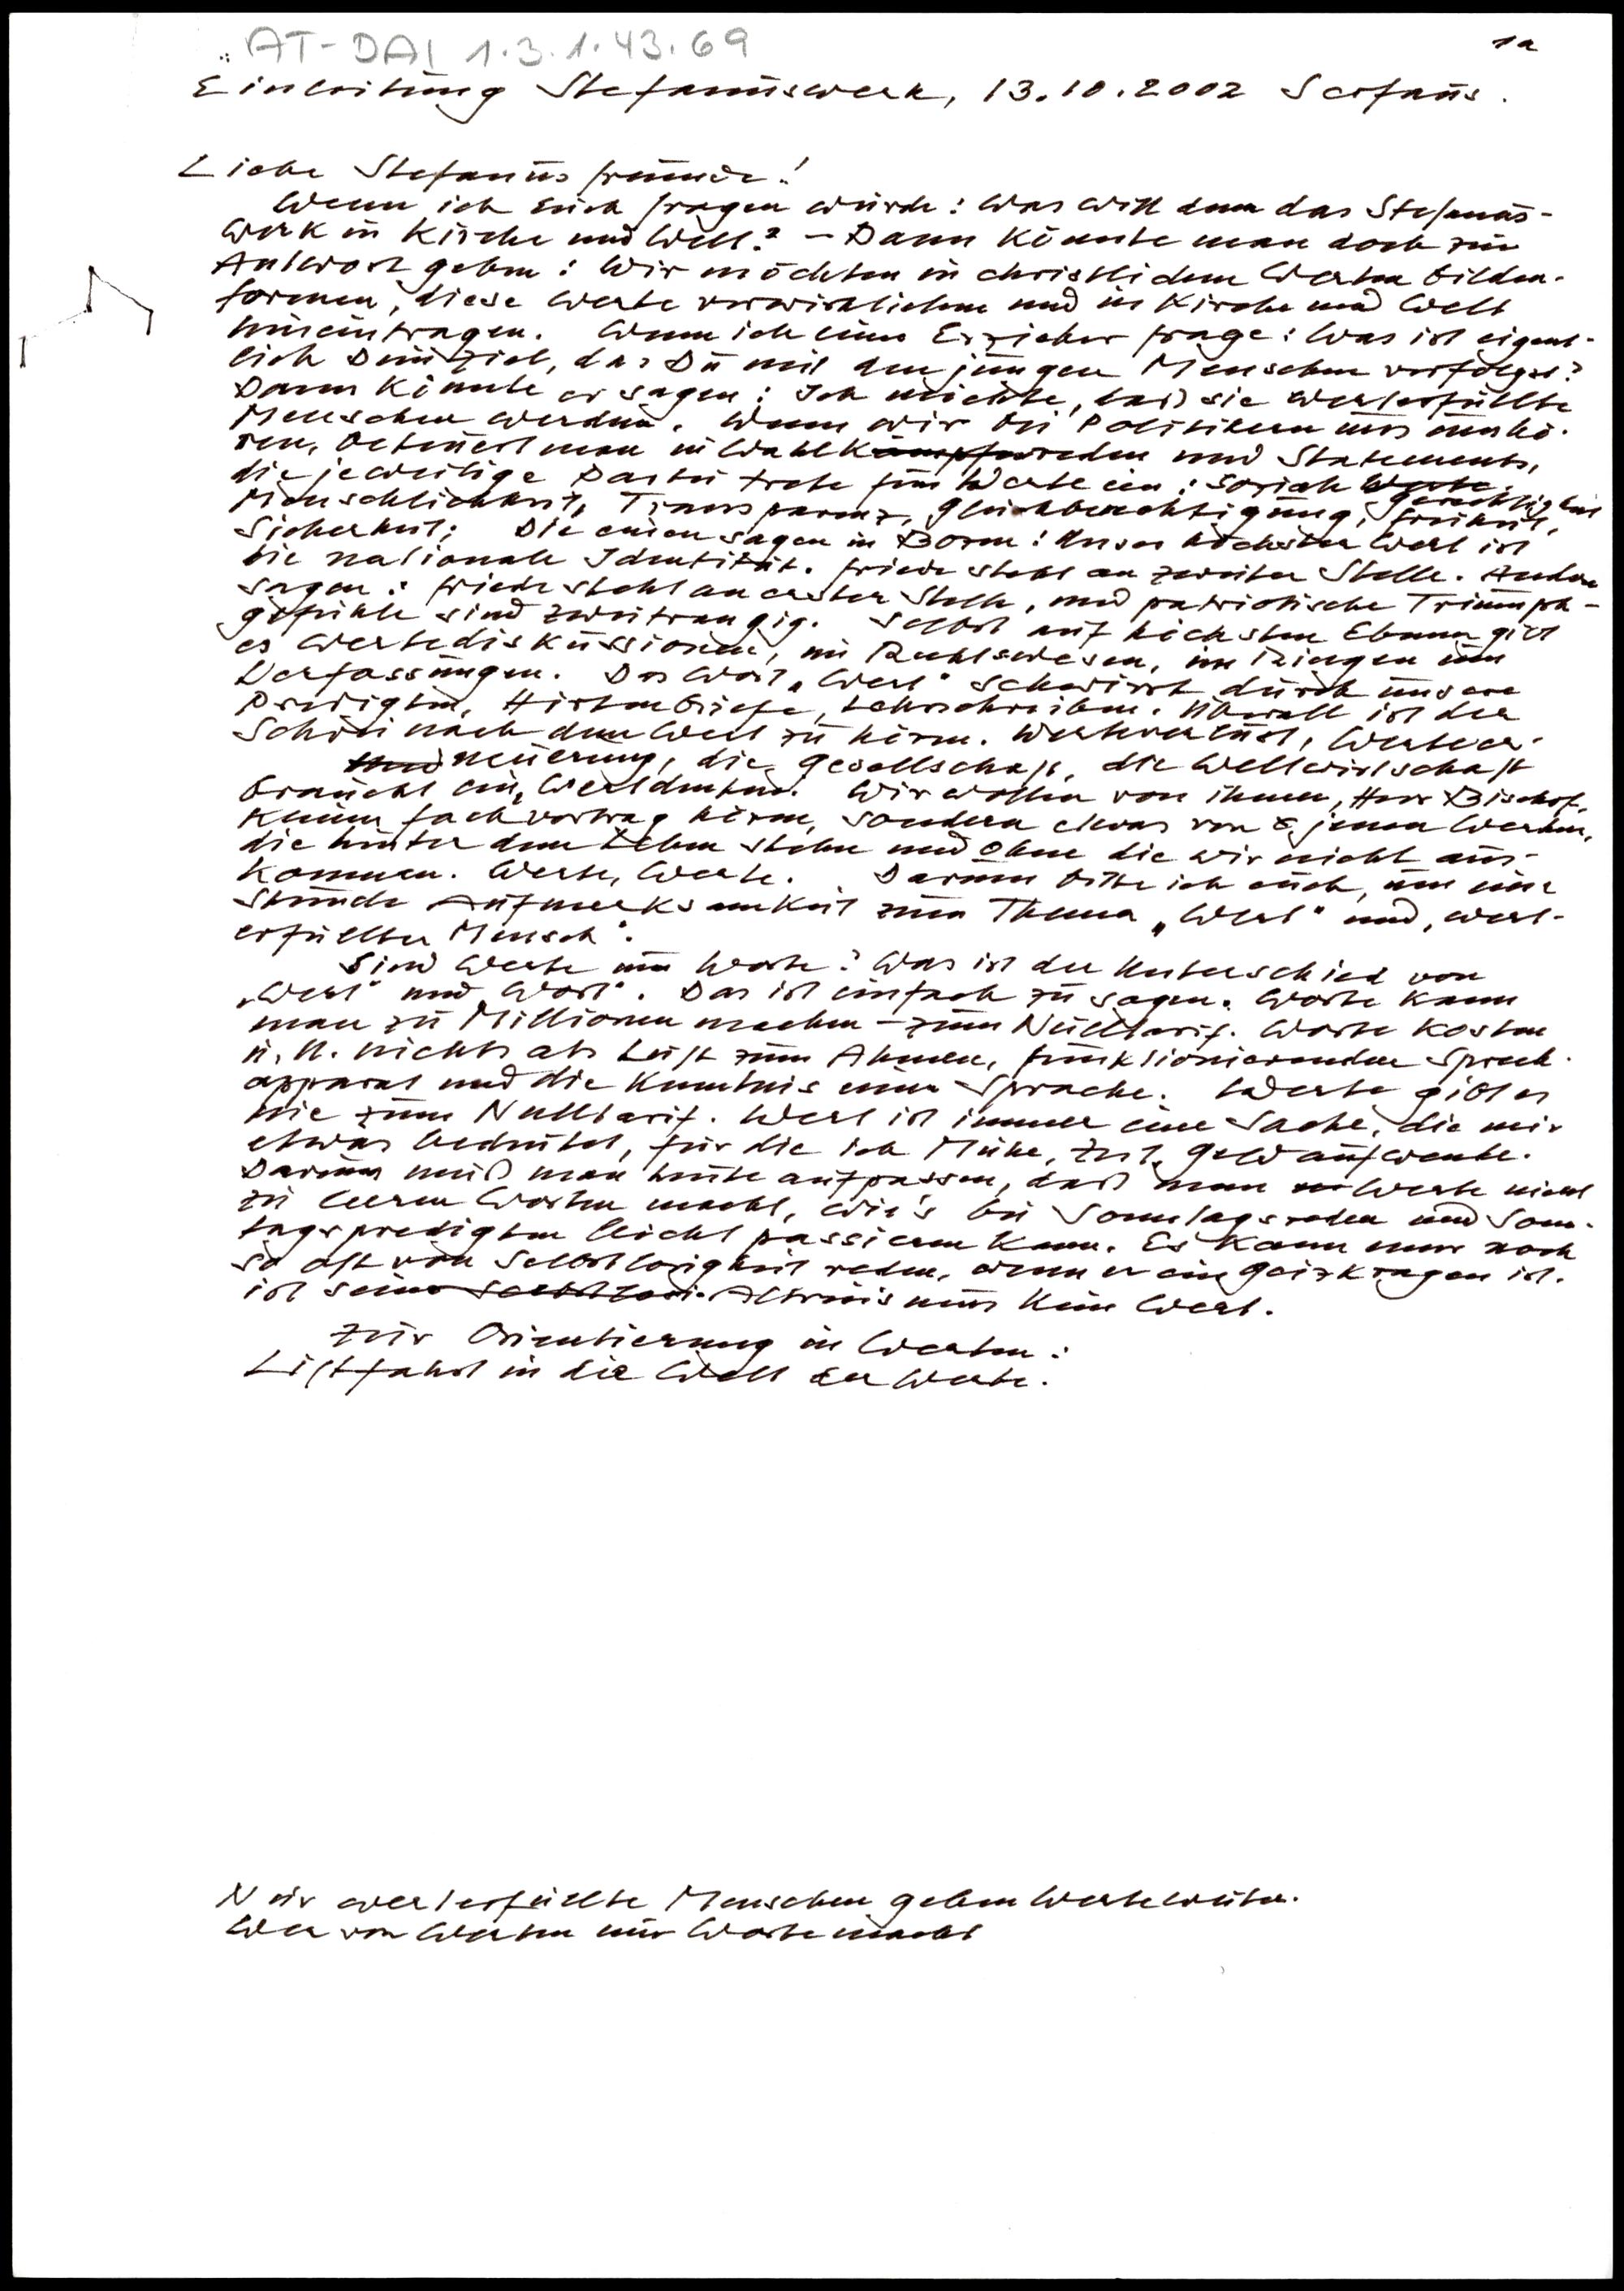 AT-DAI 1.3.1.43.69
1a
Einleitung Stefanuswerk, 13.10.2002 Serfaus.
Liebe Stefanusfreunde!
Wenn ich Euch fragen würde: Was will denn das Stefanus-
werk in Kirche und Welt? – Dann könnte man doch zur
Antwort geben: Wir möchten in christlichen Werten bilden.
formen, diese Werte verwirklichen und in Kirche und Welt
hineintragen. Wenn ich einen Erzieher frage: Was ist eigent-
lich Dein Ziel, das Du mit den jungen Menschen verfolgst?
Dann könnte er sagen: Ich möchte, daß sie werterfüllte
Menschen werden. Wenn wir bei Politikern uns umhö-
ren, beteuert man in Wahlkämpfenreden und Statements,
die jeweilige Partei trete für Werte ein: Soziale Werte, Gerechtigkeit
Menschlichkeit, Transparenz, Gleichberechtigung, Freiheit,
Sicherheit; Die einen sagen in Bozen: Unser höchster Wert ist
die nationale Identität. Friede steht an zweiter Stelle. Andere
sagen: Friede steht an erster Stelle, und patriotische Triumph-
gefühle sind zweitrangig. Selbst auf höchsten Ebenen gibt
es Wertediskussionen, im Rechtswesen, im Ringen um
Verfassungen. Das Wort "Wert" schwirrt durch unsere
Predigten, Hirtenbriefe, Lehrschreiben. Überall ist der
Schrei nach dem Wert zu hören. Werteverlust, Werteer-
neuerung, die Gesellschaft, die Weltwirtschaft
braucht ein, Wertdenken. Wir wollen von ihnen, Herr Bischof,
keinen Fachvortrag hören, sondern etwas von jenen Werten,
die hinter dem Leben stehen und ohne die wir nicht aus-
kommen. Werte, Werte. Darum bitte ich euch, um eine
Stunde Aufmerksamkeit zum Thema "Wert" und, wert-
erfüllter Mensch".
Sind Werte nur Worte? Was ist der Unterschied von
"Wert" und "Wort". Das ist einfach zu sagen. Worte kann
man zu Millionen machen – zum Nulltarif. Worte kosten
u.U. nichts als Luft zum Atmen, funktionierenden Sprech-
apparat und die Kenntnis einer Sprache. Werte gibt es
nie zum Nulltarif. Wert ist immer eine Sache, die mir
etwas bedeutet, für die ich Mühe, Zeit, Geld aufwende.
Darum muß man heute aufpassen, daß man Werte nicht
zu leeren Worten macht, wie's bei Sonntagsreden und Sonn-
tagspredigten leicht passieren kann. Es kann einer noch
so oft von Selbstlosigkeit reden, wenn er ein Geizkragen ist.
ist sein Altruismus kein Wert.
Zur Orientierung in Werten:
Liftfahrt in die Welt der Werte.
Nur werterfüllte Menschen geben Werte weiter.
Wer von Werten nur Worte macht